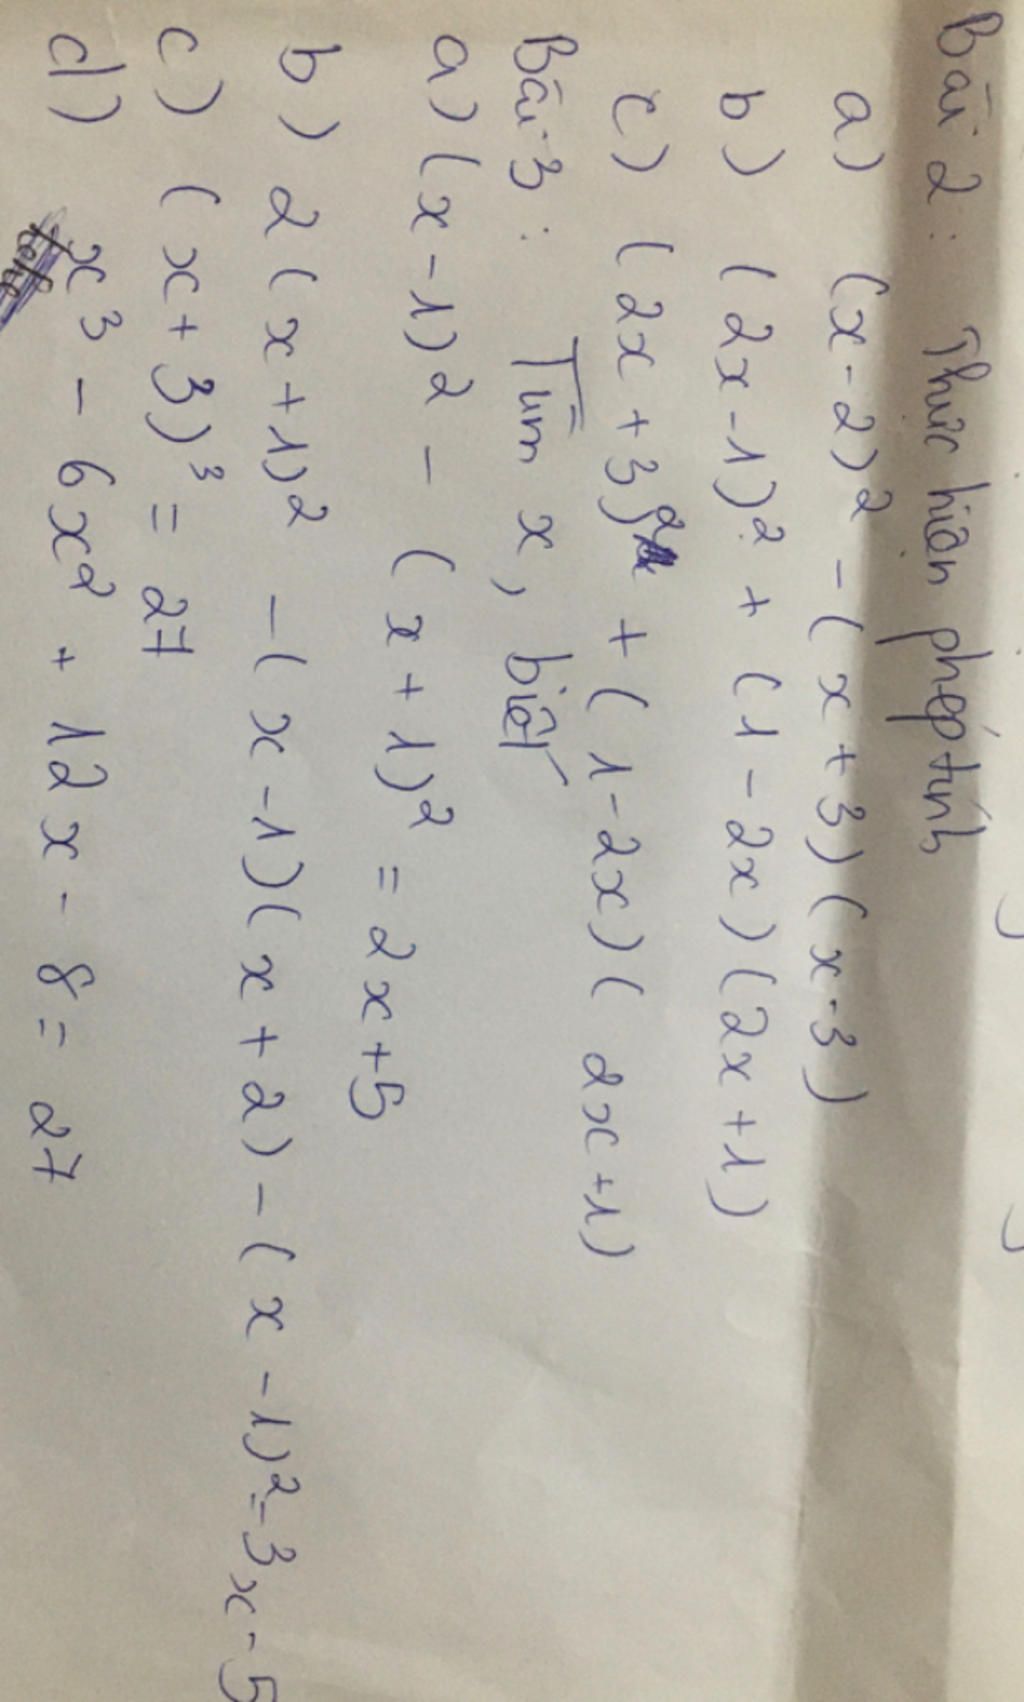 Bài 2: Thực hiện phép tính
a) (x-2)² - (x+3)(x-3)
b) (2x-1)² + (1-2x)(2x+1)
c) (2x+3)² + (1-2x)(2x+1)
Bài 3: Tìm x, biết
a) (x-1)² - (x+1)² = 2x+5
b) 2(x+1)² - (x-1)(x+2) - (x-1)² = 3x-5
c) (x+3)³ = 27
d) x³ - 6x² + 12x - 8 = 27